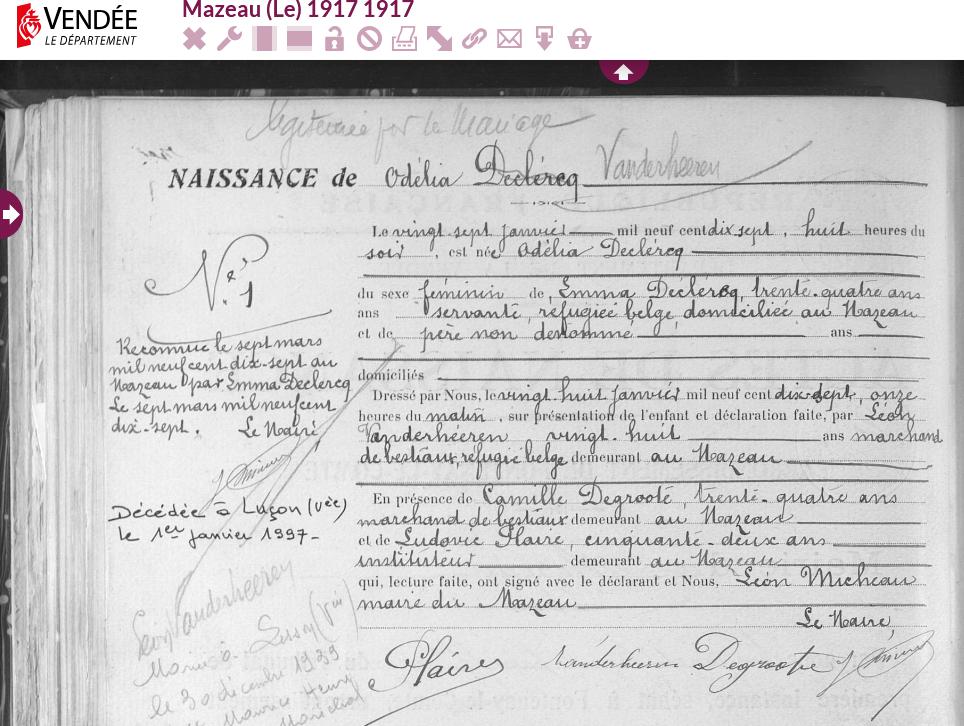 VENDÉE
LE DÉPARTEMENT
Mazeau (Le) 1917 1917
légitimée par le Mariage
NAISSANCE de Odélia Declércq Vanderheeren
Le vingt-sept janvier mil neuf cent dix sept, huit heures du
soir, est née Odélia Declércq
du sexe féminin de, Emma Declércq, trente-quatre ans
ans servante, réfugiée belge, domiciliée au Mazeau
et de père non dénommé ans
domiciliés
Dressé par Nous, le vingt-huit janvier mil neuf cent dix-sept, onze
heures du matin, sur présentation de l'enfant et déclaration faite, par Léon
Vanderhéeren vingt-huit ans marchand
de bestiaux, refugié belge demeurant au Mazeau
En présence de Camille Degroote, trente-quatre ans
marchand de bestiaux demeurant au Mazeau
et de Ludovic Plaire, cinquante-deux ans
instituteur demeurant au Mazeau
qui, lecture faite, ont signé avec le déclarant et Nous, Léon Micheau
maire du Mazeau
Le Maire,
Plaire Vanderheeren Degroote
N° 1
Reconnue le sept mars
mil neuf cent dix-sept au
Mazeau par Emma Declercq
Le sept mars mil neuf cent
dix-sept. Le Maire
Décédée à Luçon (Vée)
le 1er janvier 1997-
Léon Vanderheeren
Mariée à
le 30 décembre 1939
Maurice Henry